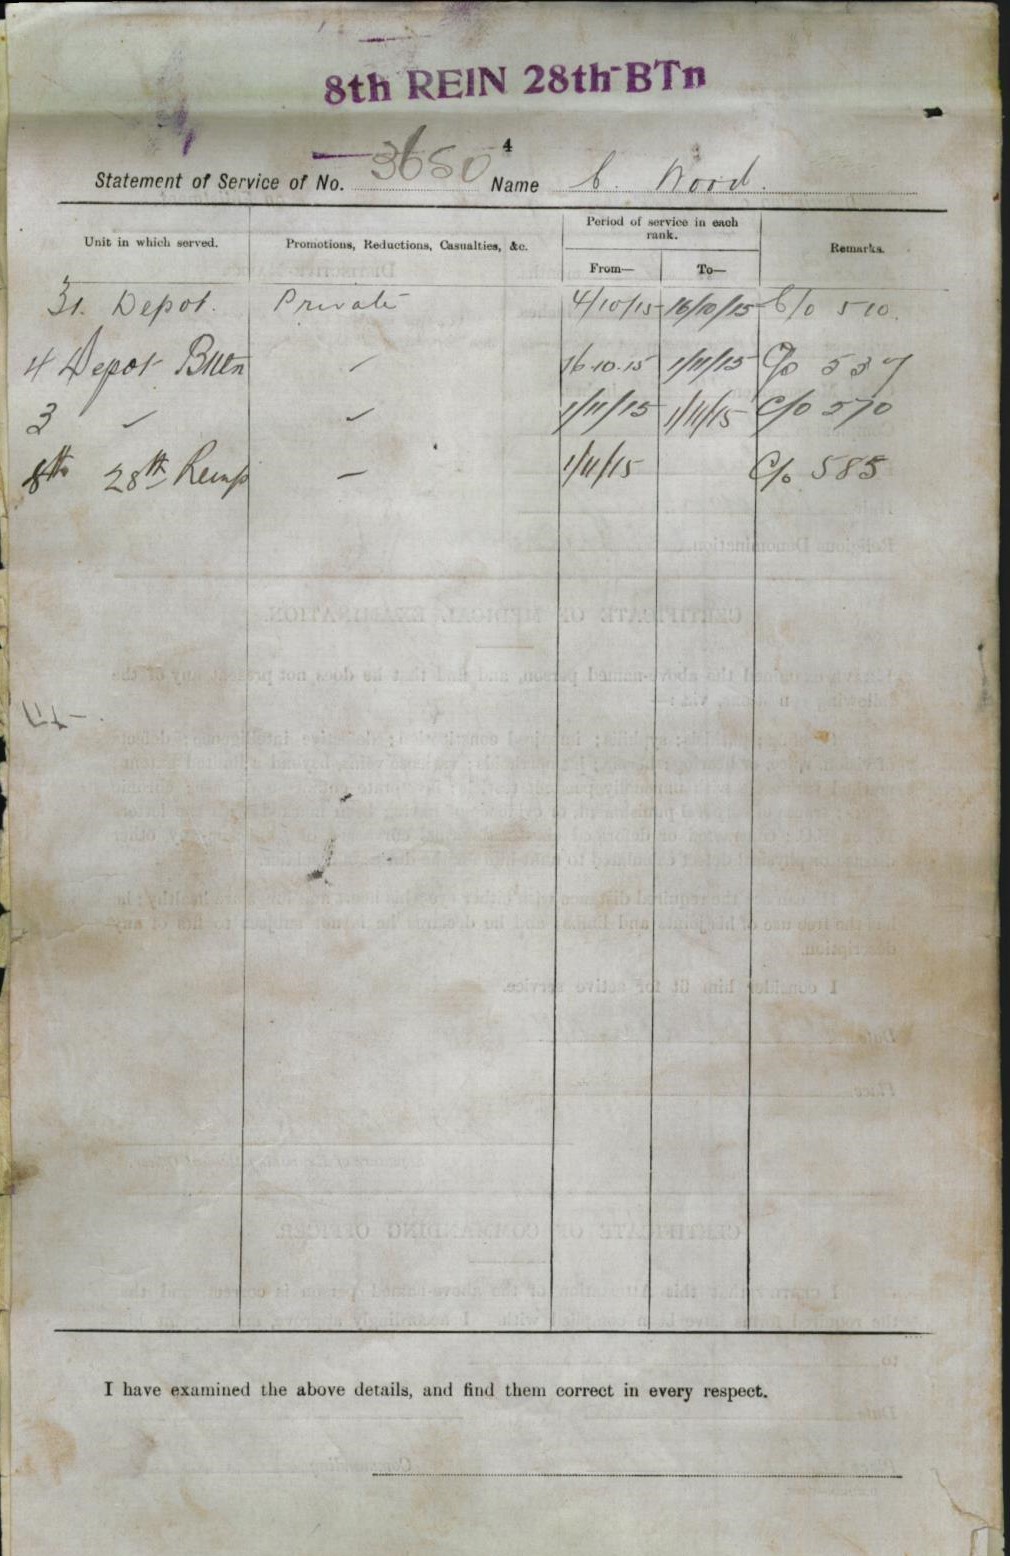 8th REIN 28th BTn
4
Statement of Service of No. 3650 Name C. Wood.
Unit in which served. Promotions, Reductions, Casualties, &c. Period of service in each rank. Remarks.
From— To—
31. Depot. Private 4/10/15 16/10/15 C/o 510.
4 Depot Battn ✓ 16.10.15 1/11/15 C/o 537
3 ✓ ✓ 1/11/15 1/11/15 C/o 570
8th 28th Reinf — 1/11/15 C/o 585
I have examined the above details, and find them correct in every respect.